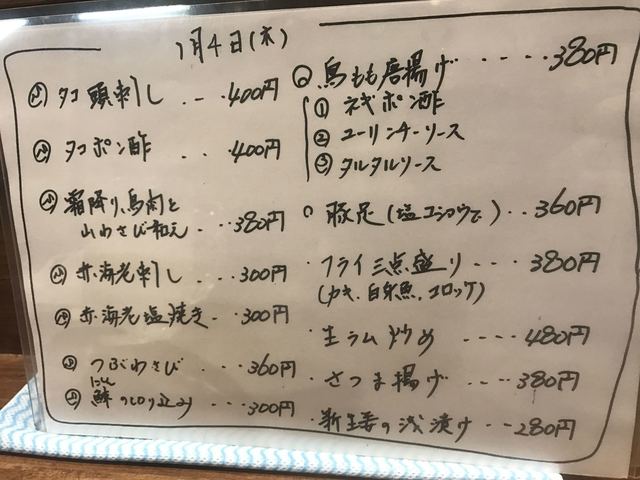 1月4日(木)
小 タコ頭刺し ... 400円
小 タコポン酢 .. 400円
小 霜降り鳥肉と
山わさび和え ... 380円
小 赤海老刺し ... 300円
小 赤海老塩焼き .. 300円
小 つぶわさび ... 360円
にしん
小 鰊の切り込み ... 300円
○ 鳥もも唐揚げ ..... 380円
① ネギポン酢
② ユーリンチーソース
③ タルタルソース
○ 豚足(塩コショウで) .. 360円
・フライ三点盛り .... 380円
(カキ、白身魚、コロッケ)
・生ラム炒め .... 480円
・さつま揚げ .... 380円
・新生姜の浅漬け .. 280円